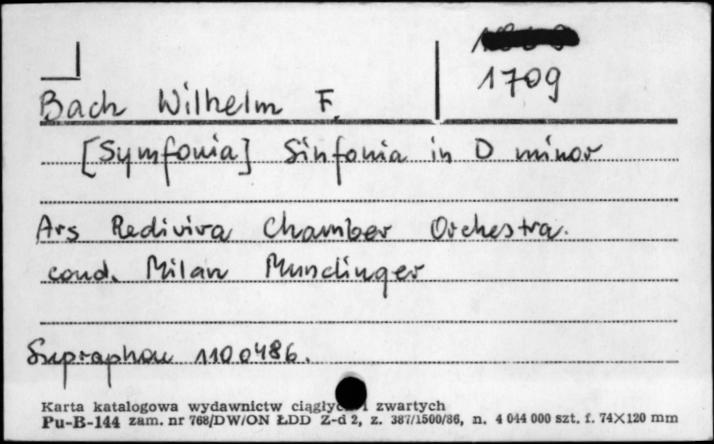 1709
Bach Wilhelm F.
[Symfonia] Sinfonia in D minor
Ars Rediviva Chamber Orchestra.
cond. Milan Munclinger
Supraphon 1100486.
Karta katalogowa wydawnictw ciągłych i zwartych
Pu-B-144 zam. nr 768/DW/ON ŁDD Z-d 2, z. 387/1500/86, n. 4 044 000 szt. f. 74×120 mm